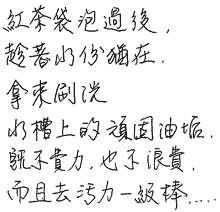 紅茶袋泡過後，
趁著水份猶在，
拿來刷洗
水槽上的頑固油垢，
既不費力，也不浪費，
而且去污力一級棒.....